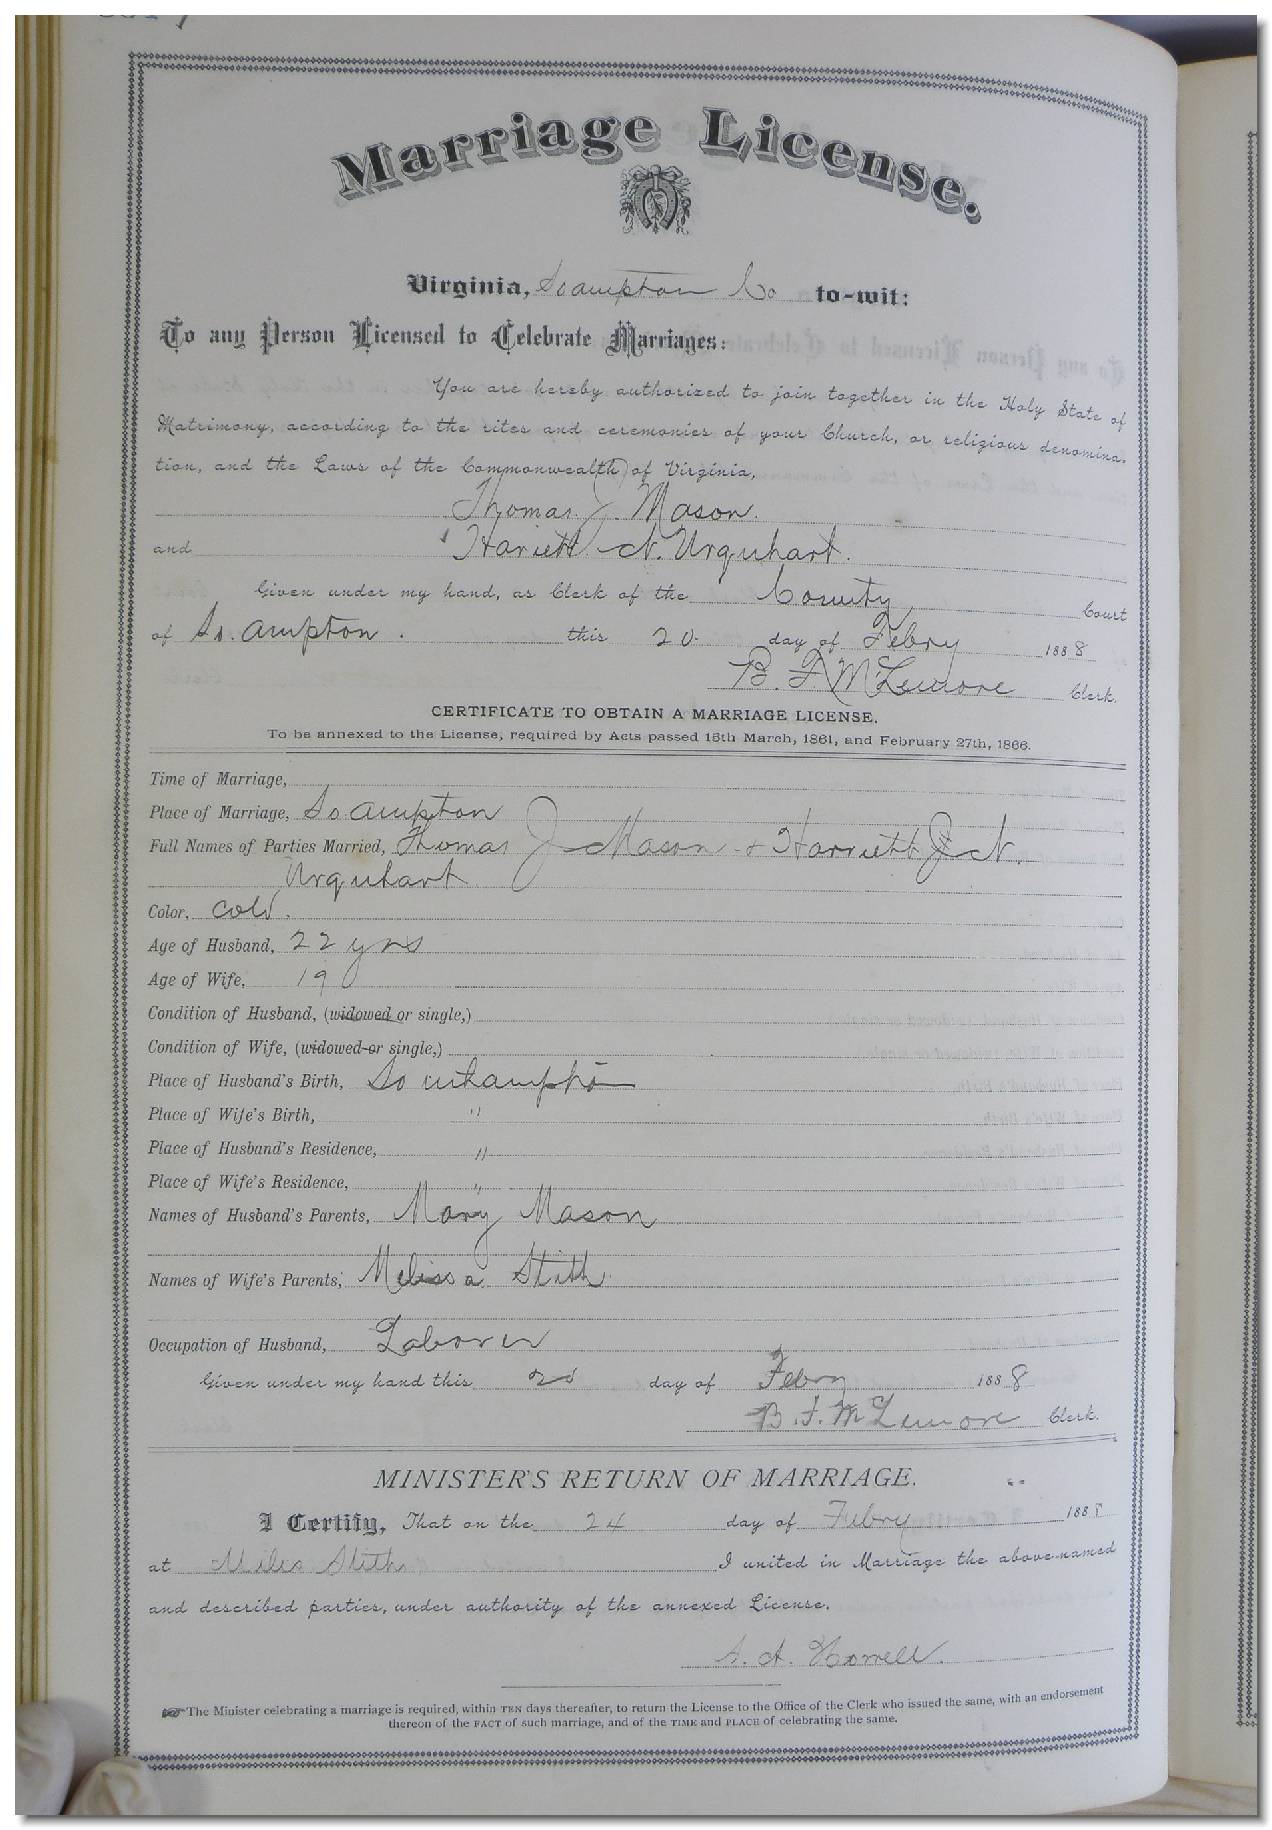 Marriage License.
Virginia, Soampton Co to-wit:
To any Person Licensed to Celebrate Marriages:
You are hereby authorized to join together in the Holy State of
Matrimony, according to the rites and ceremonies of your Church, or religious denomina-
tion, and the Laws of the Commonwealth of Virginia,
Thomas J. Mason.
and Hariett N. Urquhart.
Given under my hand, as Clerk of the County Court
of So.ampton. this 20 day of Febry 1888
B. F. McLemore Clerk.
CERTIFICATE TO OBTAIN A MARRIAGE LICENSE.
To be annexed to the License, required by Acts passed 15th March, 1861, and February 27th, 1866.
Time of Marriage,
Place of Marriage, So.ampton
Full Names of Parties Married, Thomas J Mason & Harriett J N.
Urquhart
Color, Cold.
Age of Husband, 22 yrs
Age of Wife, 19
Condition of Husband, (widowed or single,)
Condition of Wife, (widowed or single,)
Place of Husband's Birth, Southampton
Place of Wife's Birth, "
Place of Husband's Residence, "
Place of Wife's Residence, "
Names of Husband's Parents, Mary Mason
Names of Wife's Parents, Melissa Stith
Occupation of Husband, Laborer
Given under my hand this 20 day of Febry 1888
B. F. McLemore Clerk.
MINISTER'S RETURN OF MARRIAGE.
I Certify, That on the 24 day of Febry 1888
at Miles Stiths I united in Marriage the above-named
and described parties, under authority of the annexed License.
S. A. Howell.
The Minister celebrating a marriage is required, within TEN days thereafter, to return the License to the Office of the Clerk who issued the same, with an endorsement
thereon of the FACT of such marriage, and of the TIME and PLACE of celebrating the same.